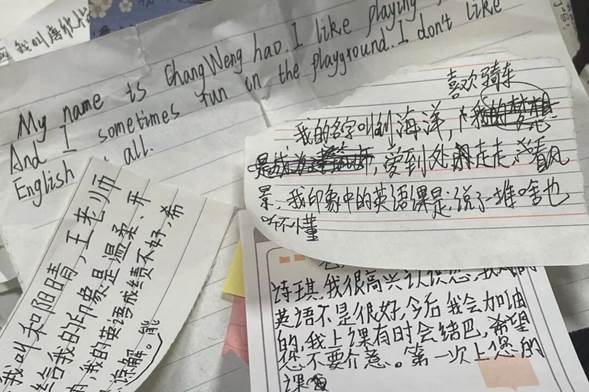 My name is ChangWenghao. I like playing
And I sometimes fun on the playground. I don't like
English at all.
喜欢骑车
我的名字叫刘海洋,
爱到处走走,看风
景,我印象中的英语课是:说了一堆啥也
听不懂
我叫和阳晴,王老师
给我的印象是温柔、开
我的英语成绩不好,希
误解。
诗琪,我很高兴认识您,
英语不是很好,今后我会加油
的,我上课有时会结巴,希望
您不要介意。第一次上您的
课
我叫